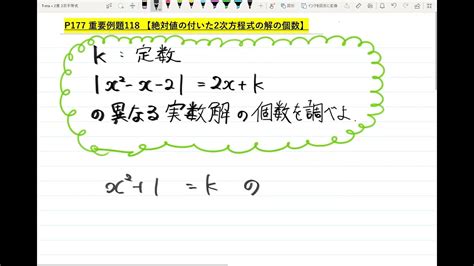 P177 重要例題118 【絶対値の付いた2次方程式の解の個数】
k : 定数
|x²-x-2| = 2x+k
の異なる実数解の個数を調べよ.
x²+1 = k の